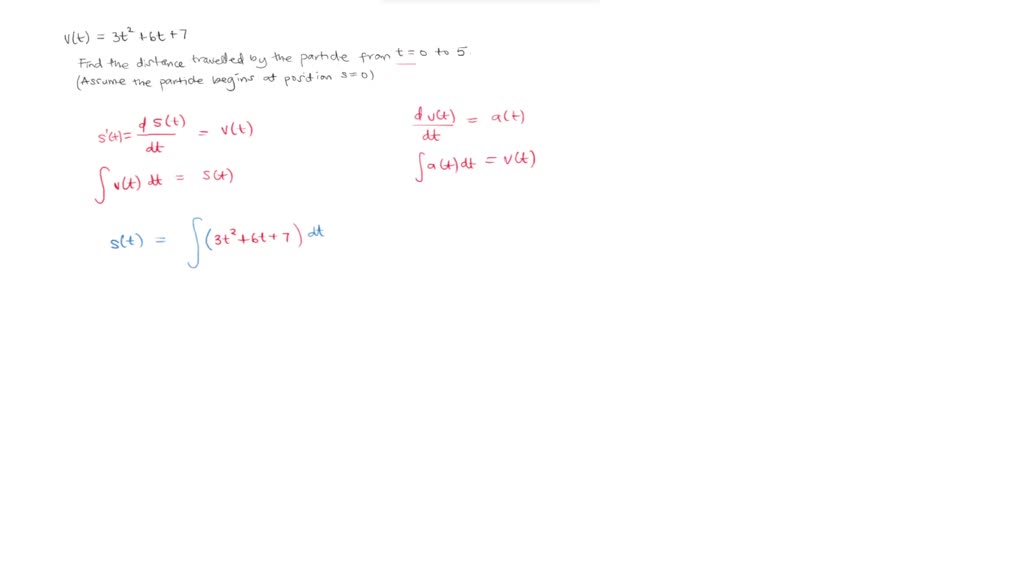 v(t) = 3t² + 6t + 7
Find the distance travelled by the particle from t = 0 to 5.
(Assume the particle begins at position s = 0)
s'(t) = d s(t)/dt = v(t)
d v(t)/dt = a(t)
∫ v(t) dt = s(t)
∫ a(t) dt = v(t)
s(t) = ∫ (3t² + 6t + 7) dt